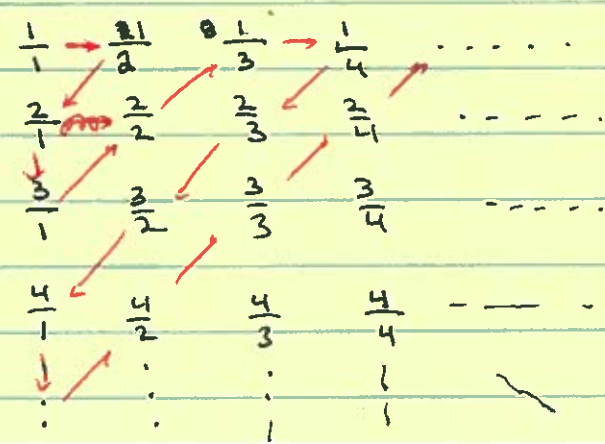 1/1 1/2 1/3 1/4 . . . . . .
2/1 2/2 2/3 2/4 . - - - -
3/1 3/2 3/3 3/4 - - - - -
4/1 4/2 4/3 4/4 - — - .